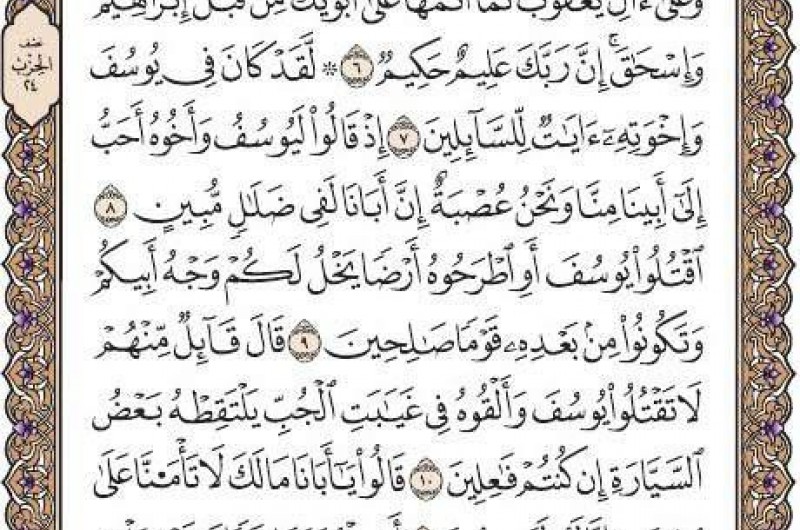 وَعَلَىٰٓ ءَالِ يَعۡقُوبَ كَمَآ أَتَمَّهَا عَلَىٰٓ أَبَوَيۡكَ مِن قَبۡلُ إِبۡرَٰهِيمَ
وَإِسۡحَٰقَۚ إِنَّ رَبَّكَ عَلِيمٌ حَكِيمٞ ٦ ۞ لَّقَدۡ كَانَ فِي يُوسُفَ
وَإِخۡوَتِهِۦٓ ءَايَٰتٞ لِّلسَّآئِلِينَ ٧ إِذۡ قَالُواْ لَيُوسُفُ وَأَخُوهُ أَحَبُّ
إِلَىٰٓ أَبِينَا مِنَّا وَنَحۡنُ عُصۡبَةٌ إِنَّ أَبَانَا لَفِي ضَلَٰلٖ مُّبِينٍ ٨
ٱقۡتُلُواْ يُوسُفَ أَوِ ٱطۡرَحُوهُ أَرۡضٗا يَخۡلُ لَكُمۡ وَجۡهُ أَبِيكُمۡ
وَتَكُونُواْ مِنۢ بَعۡدِهِۦ قَوۡمٗا صَٰلِحِينَ ٩ قَالَ قَآئِلٞ مِّنۡهُمۡ
لَا تَقۡتُلُواْ يُوسُفَ وَأَلۡقُوهُ فِي غَيَٰبَتِ ٱلۡجُبِّ يَلۡتَقِطۡهُ بَعۡضُ
ٱلسَّيَّارَةِ إِن كُنتُمۡ فَٰعِلِينَ ١٠ قَالُواْ يَٰٓأَبَانَا مَالَكَ لَا تَأۡمَ۬نَّا عَلَىٰ
نصف
الحزب
٢٤